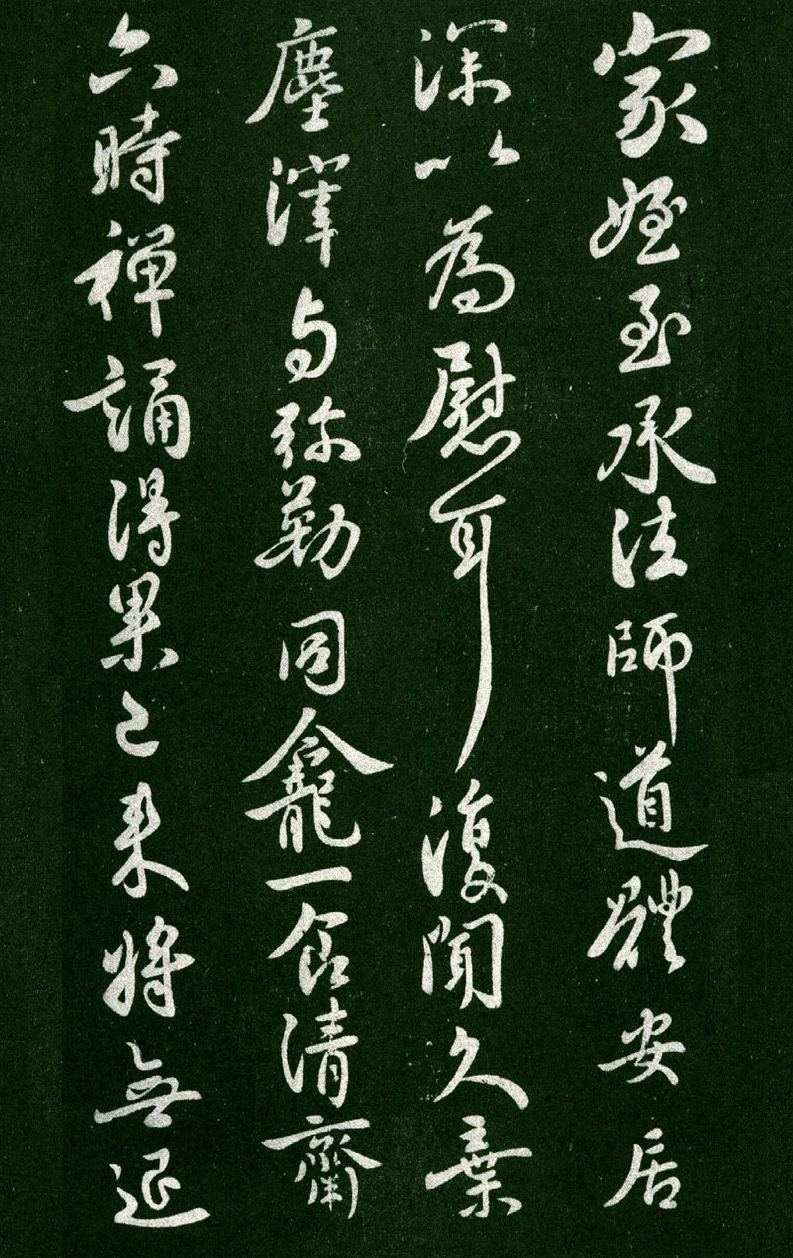 家姪至承法師道體安居
深以為慰耳復聞久棄
塵滓与弥勒同龕一食清齋
六時禪誦得果已來將無退